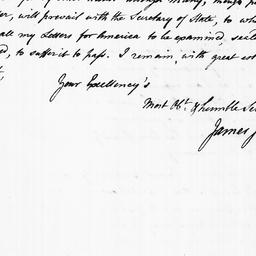 er, will prevail with the Secretary of State, to wh
all my Letters for America to be examined, seal
ed, to suffer it to pass. I remain, with great est
Your Excellency's
Most Obt. & humble Se
James